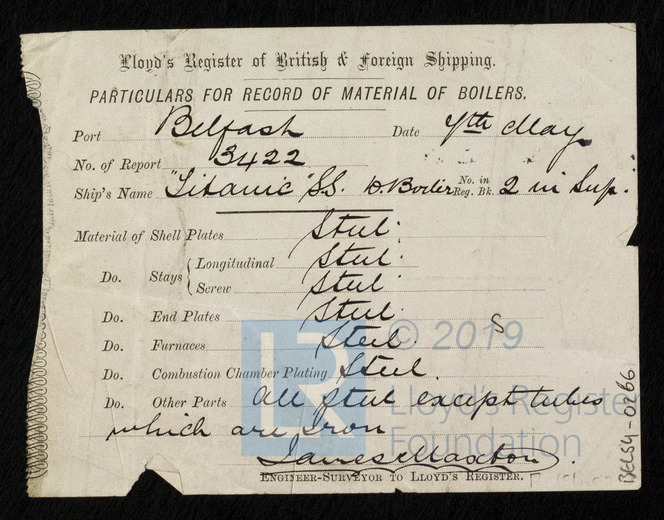 Lloyd's Register of British & Foreign Shipping.
PARTICULARS FOR RECORD OF MATERIAL OF BOILERS.
Port Belfast Date 7th May
No. of Report 3422
Ship's Name "Titanic" S.S. D. Boiler No. in Reg. Bk. 2 in Sup.
Material of Shell Plates Steel.
Do. Stays { Longitudinal Steel.
Screw Steel.
Do. End Plates Steel.
Do. Furnaces Steel.
Do. Combustion Chamber Plating Steel.
Do. Other Parts All Steel except tubes
which are Iron
James Maxton.
ENGINEER-SURVEYOR TO LLOYD'S REGISTER.
S
BEL54-0266
LR © 2019
Lloyd's Register
Foundation